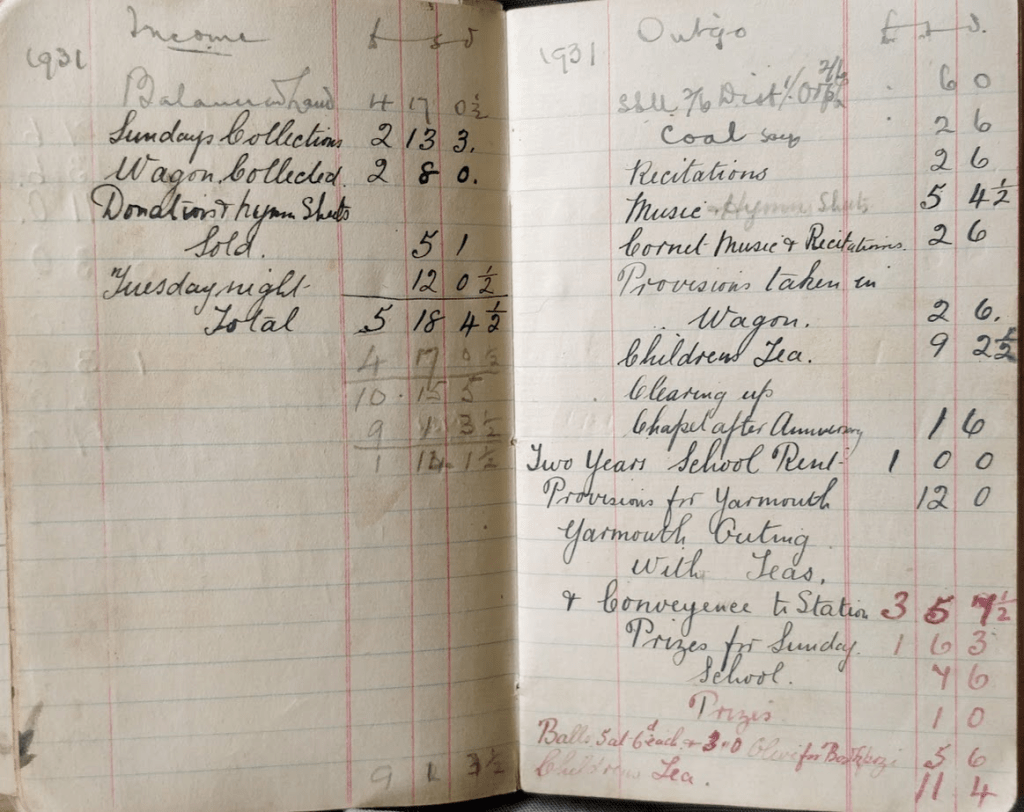 1931 Income £ s d
Balance in Hand 4 17 0½
Sundays Collections 2 13 3.
Wagon Collected. 2 8 0.
Donations & hymn Sheets
Sold. 5 1
Tuesday night 12 0½
Total 5 18 4½
4 17 0½
10 . 15 5
9 1 3½
1 14 1½
9 1 3½
1931 Outgo £ s d.
2/6 Dist 6 0
Coal 2 6
Recitations 2 6
Music & Hymn Sheets 5 4½
Cornet Music & Recitations. 2 6
Provisions taken in
Wagon. 2 6.
Childrens Tea. 9 2½
Clearing up
Chapel after Anniversary 1 6
Two Years School Rent 1 0 0
Provisions for Yarmouth 12 0
Yarmouth Outing
With Teas.
& Conveyence to Station 3 5 7½
Prizes for Sunday. 1 6 3
School. 7 6
Prizes 1 0
Balls 5 at 6d each & 3-0 for 5 6
Childrens Tea. 11 4